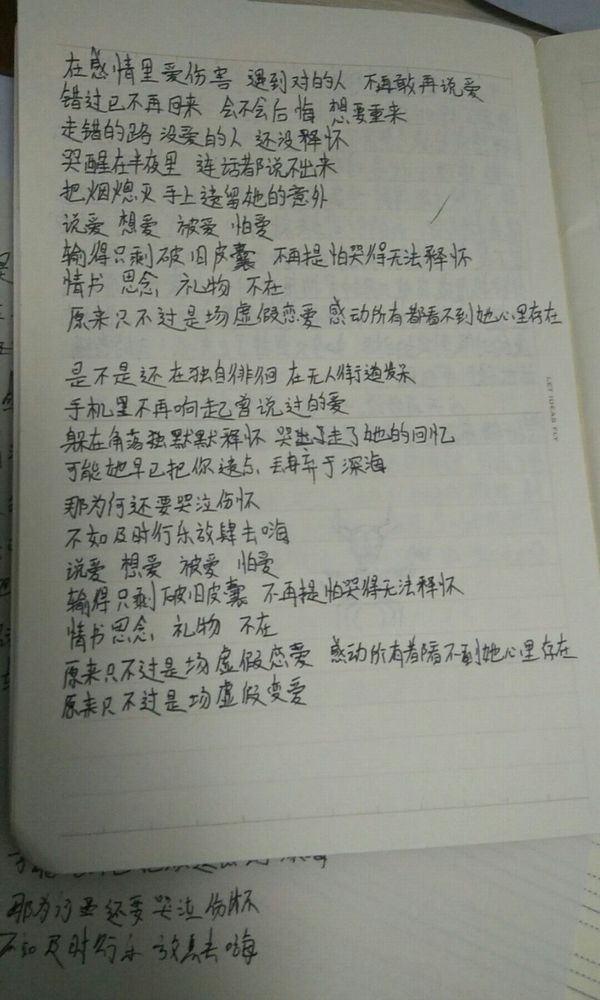 在感情里爱伤害 遇到对的人 不再敢再说爱
错过已不再回来 会不会后悔 想要重来
走错的路 没爱的人 还没释怀
哭醒在半夜里 连话都说不出来
把烟熄灭 手上遗留她的意外
说爱 想爱 被爱 怕爱
输得只剩破旧皮囊 不再提怕哭得无法释怀
情书 思念 礼物 不在
原来只不过是场虚假恋爱 感动所有都看不到她心里存在
是不是还在独自徘徊 在无人街道发呆
手机里不再响起曾说过的爱
躲在角落独默默释怀 哭出了走了她的回忆
可能她早已把你遗忘 丢弃于深海
那为何还要哭泣伤怀
不如及时行乐放肆去嗨
说爱 想爱 被爱 怕爱
输得只剩破旧皮囊 不再提怕哭得无法释怀
情书思念 礼物 不在
原来只不过是场虚假恋爱 感动所有都看不到她心里存在
原来只不过是场虚假变爱
LET IDEAS FLY
那为何还要哭泣伤怀
不如及时行乐 放去嗨